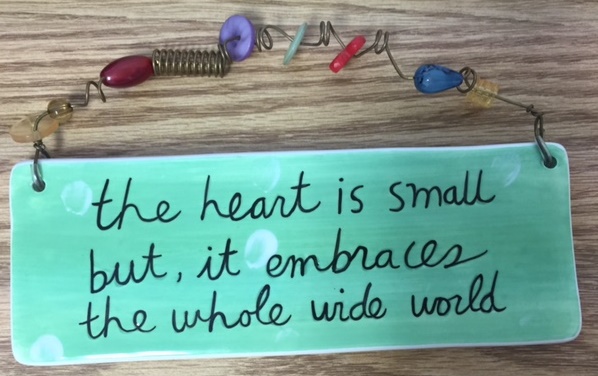 the heart is small
but, it embraces
the whole wide world